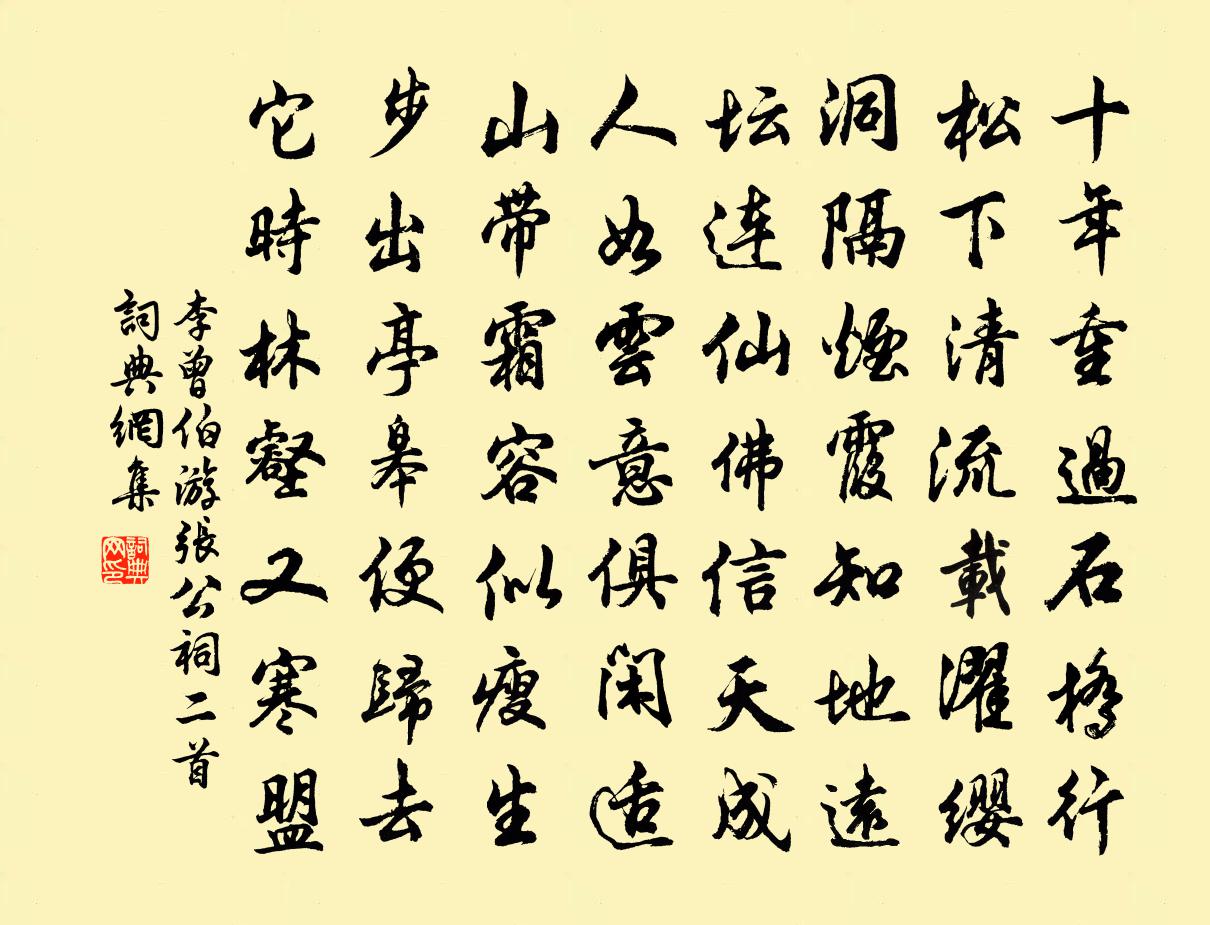 十年重過石橋行
松下清流載濯纓
洞隔煙霞知地遠
坛連仙佛信天成
人如雲意俱闲适
山带霜容似瘦生
步出亭皋便歸去
它時林壑又寒盟
李曾伯游張公祠二首
詞典網集
詞典網印